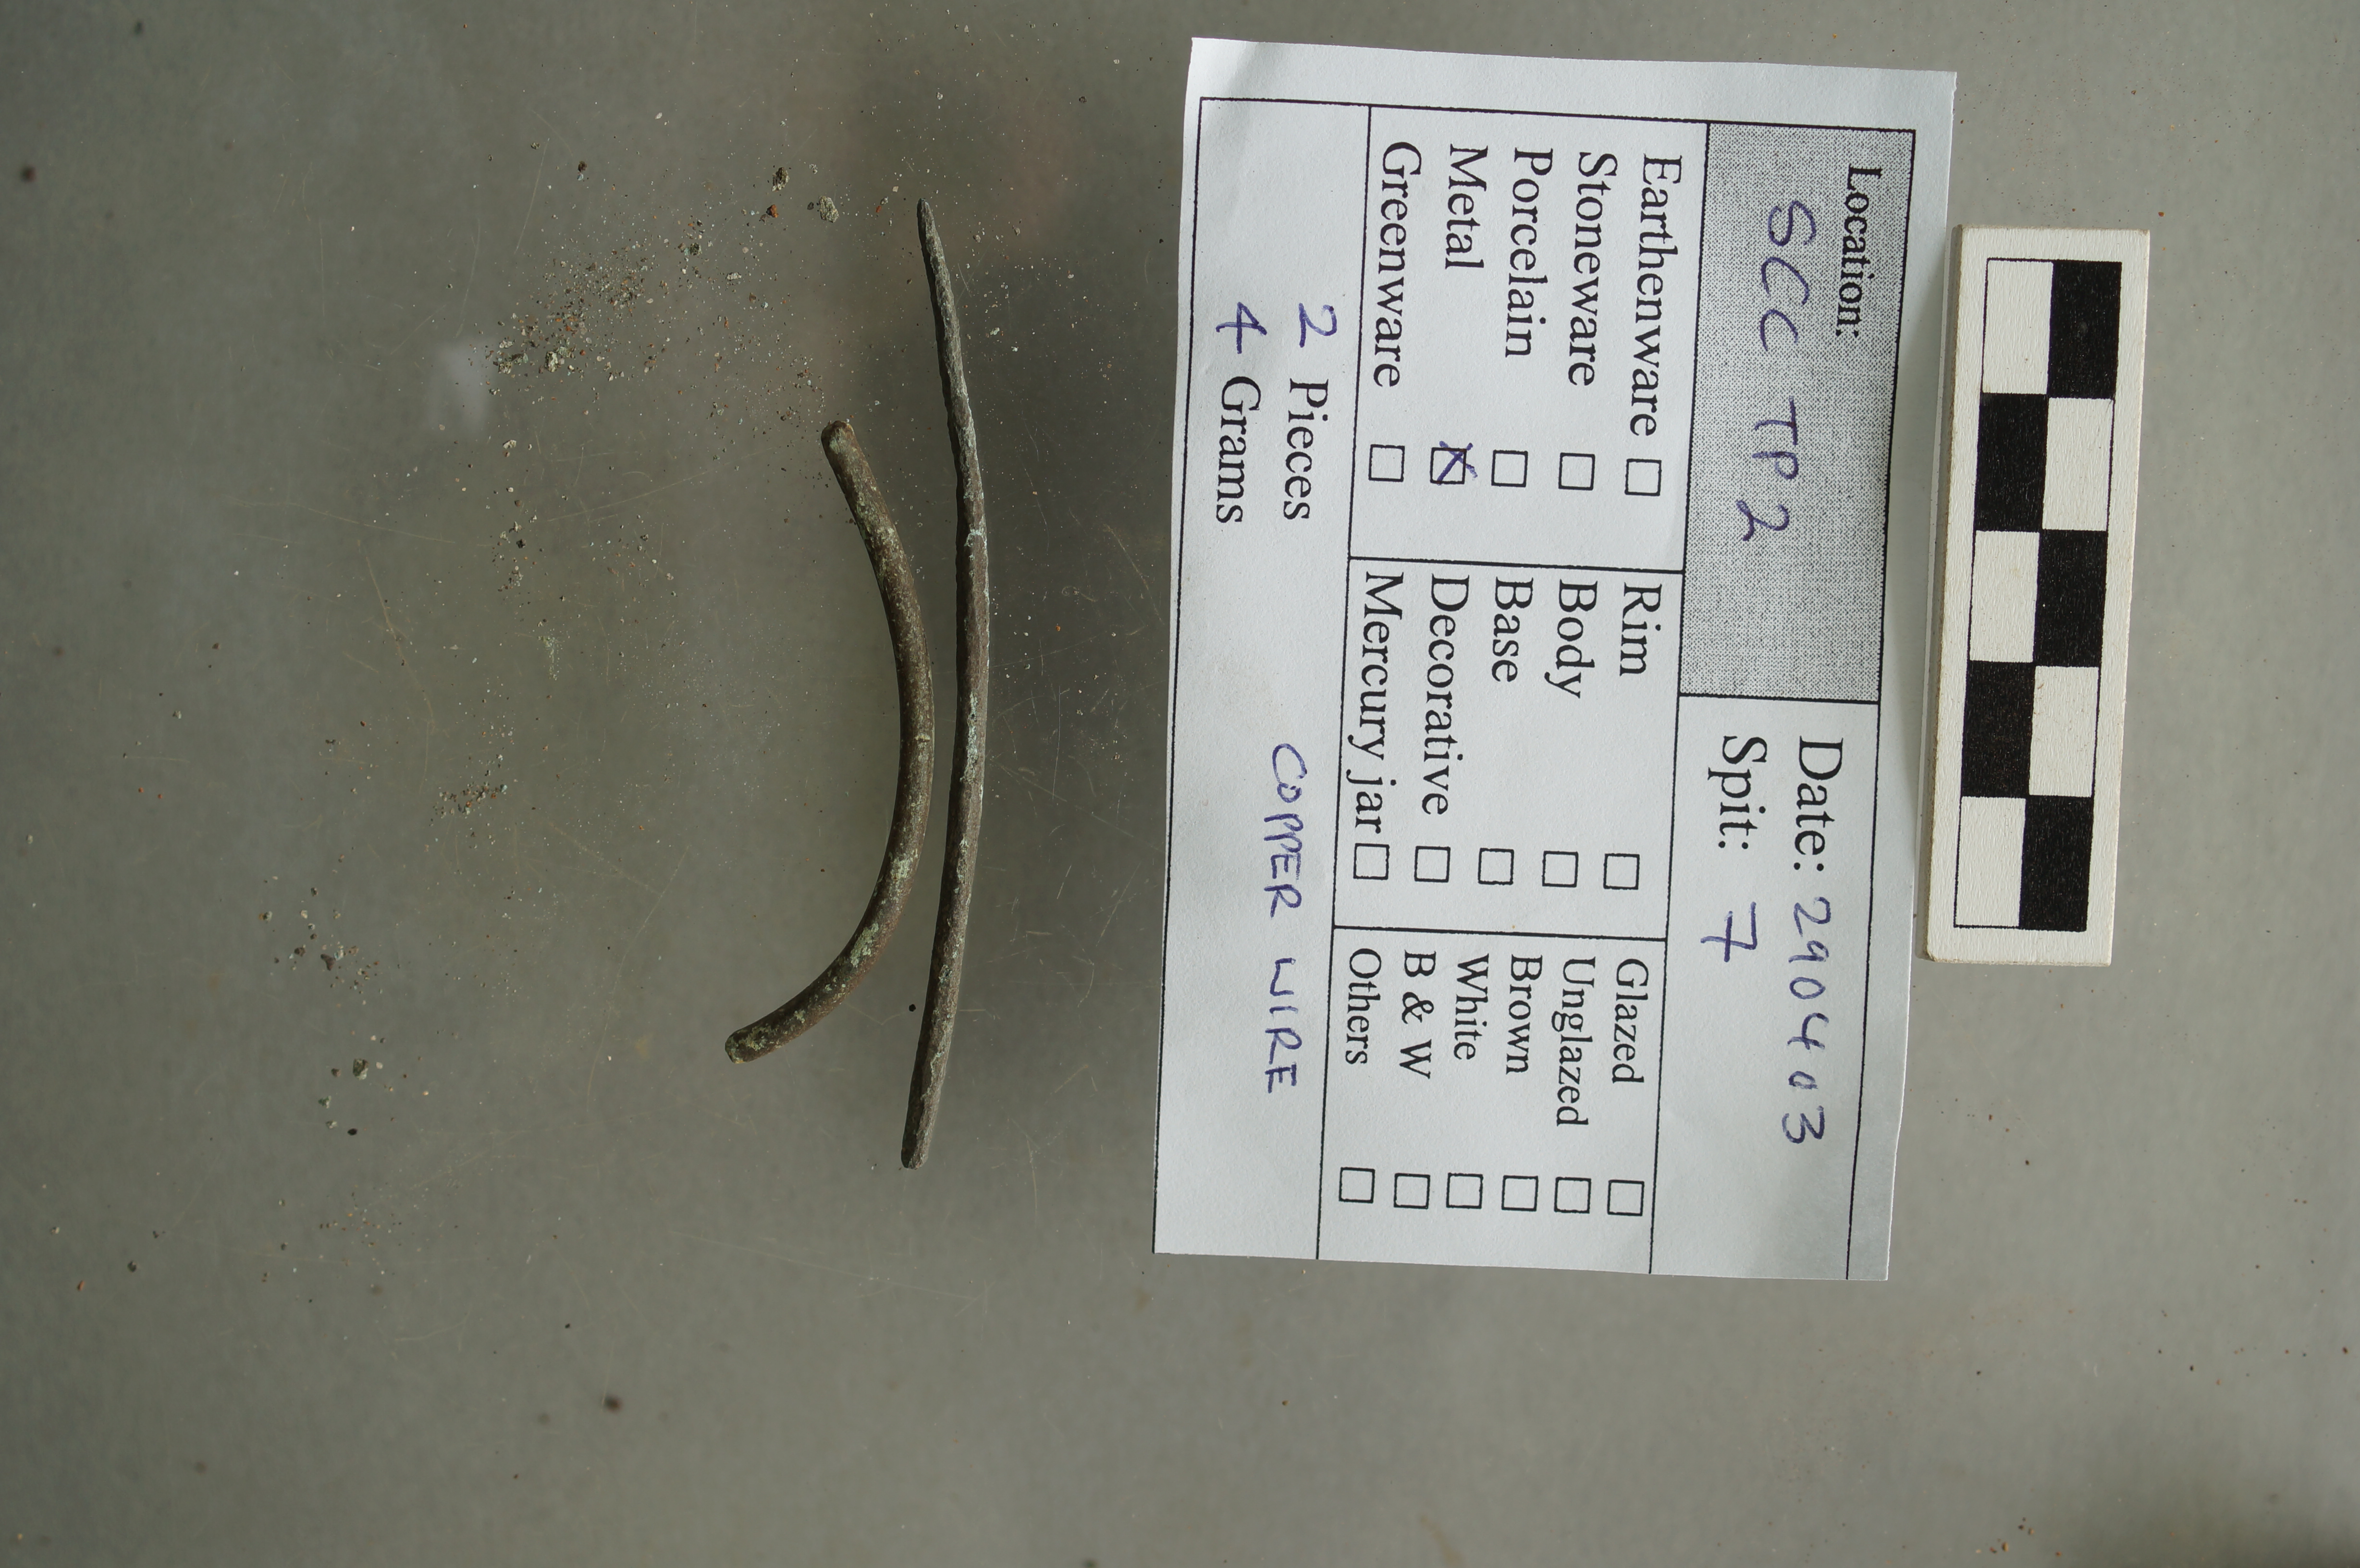 Location:
SCC TP2
Date: 290403
Spit: 7
Earthenware
Stoneware
Porcelain
Metal
Greenware
Rim
Body
Base
Decorative
Mercury jar
Glazed
Unglazed
Brown
White
B & W
Others
2 Pieces
4 Grams
COPPER WIRE